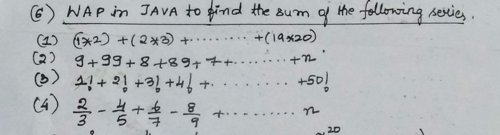 (6) WAP in JAVA to find the sum of the following series.
(1) (1×2) + (2×3) + ......... + (19×20)
(2) 9 + 99 + 8 + 89 + 7 + ......... + n
(3) 1! + 2! + 3! + 4! + ......... + 50!
(4) 2/3 - 4/5 + 6/7 - 8/9 + ......... n
20